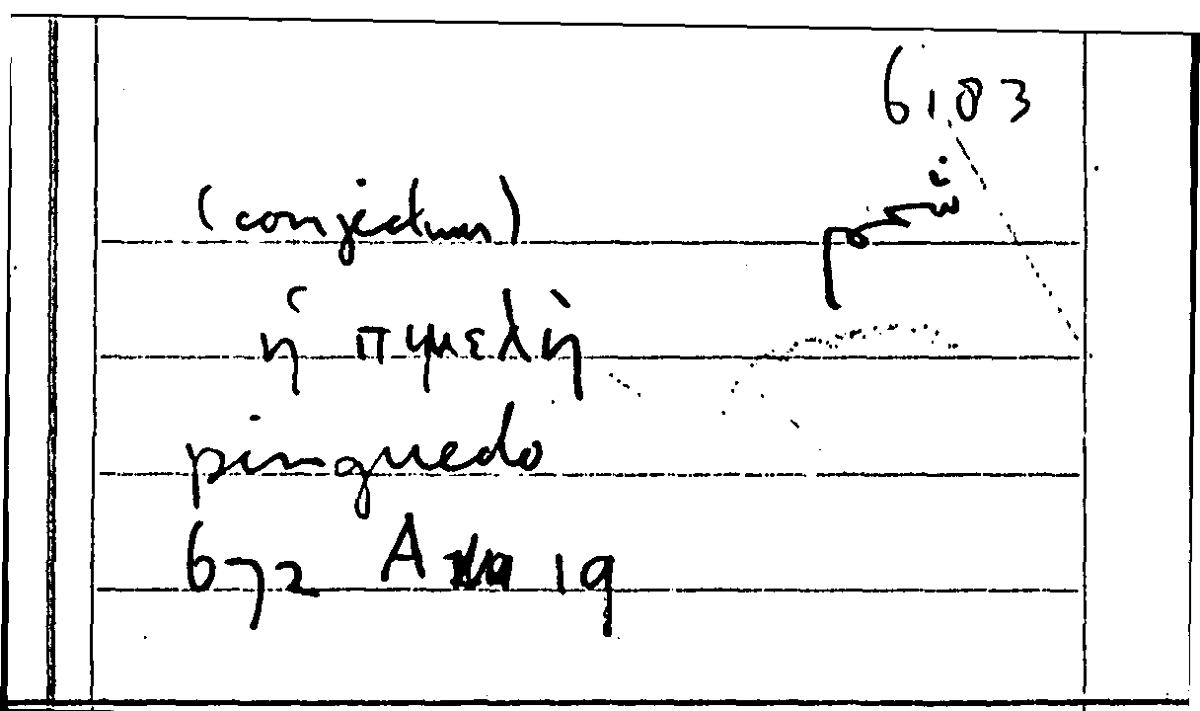 6103
(conjectur)
ἡ πιμελὴ
pinguedo
672 A 19